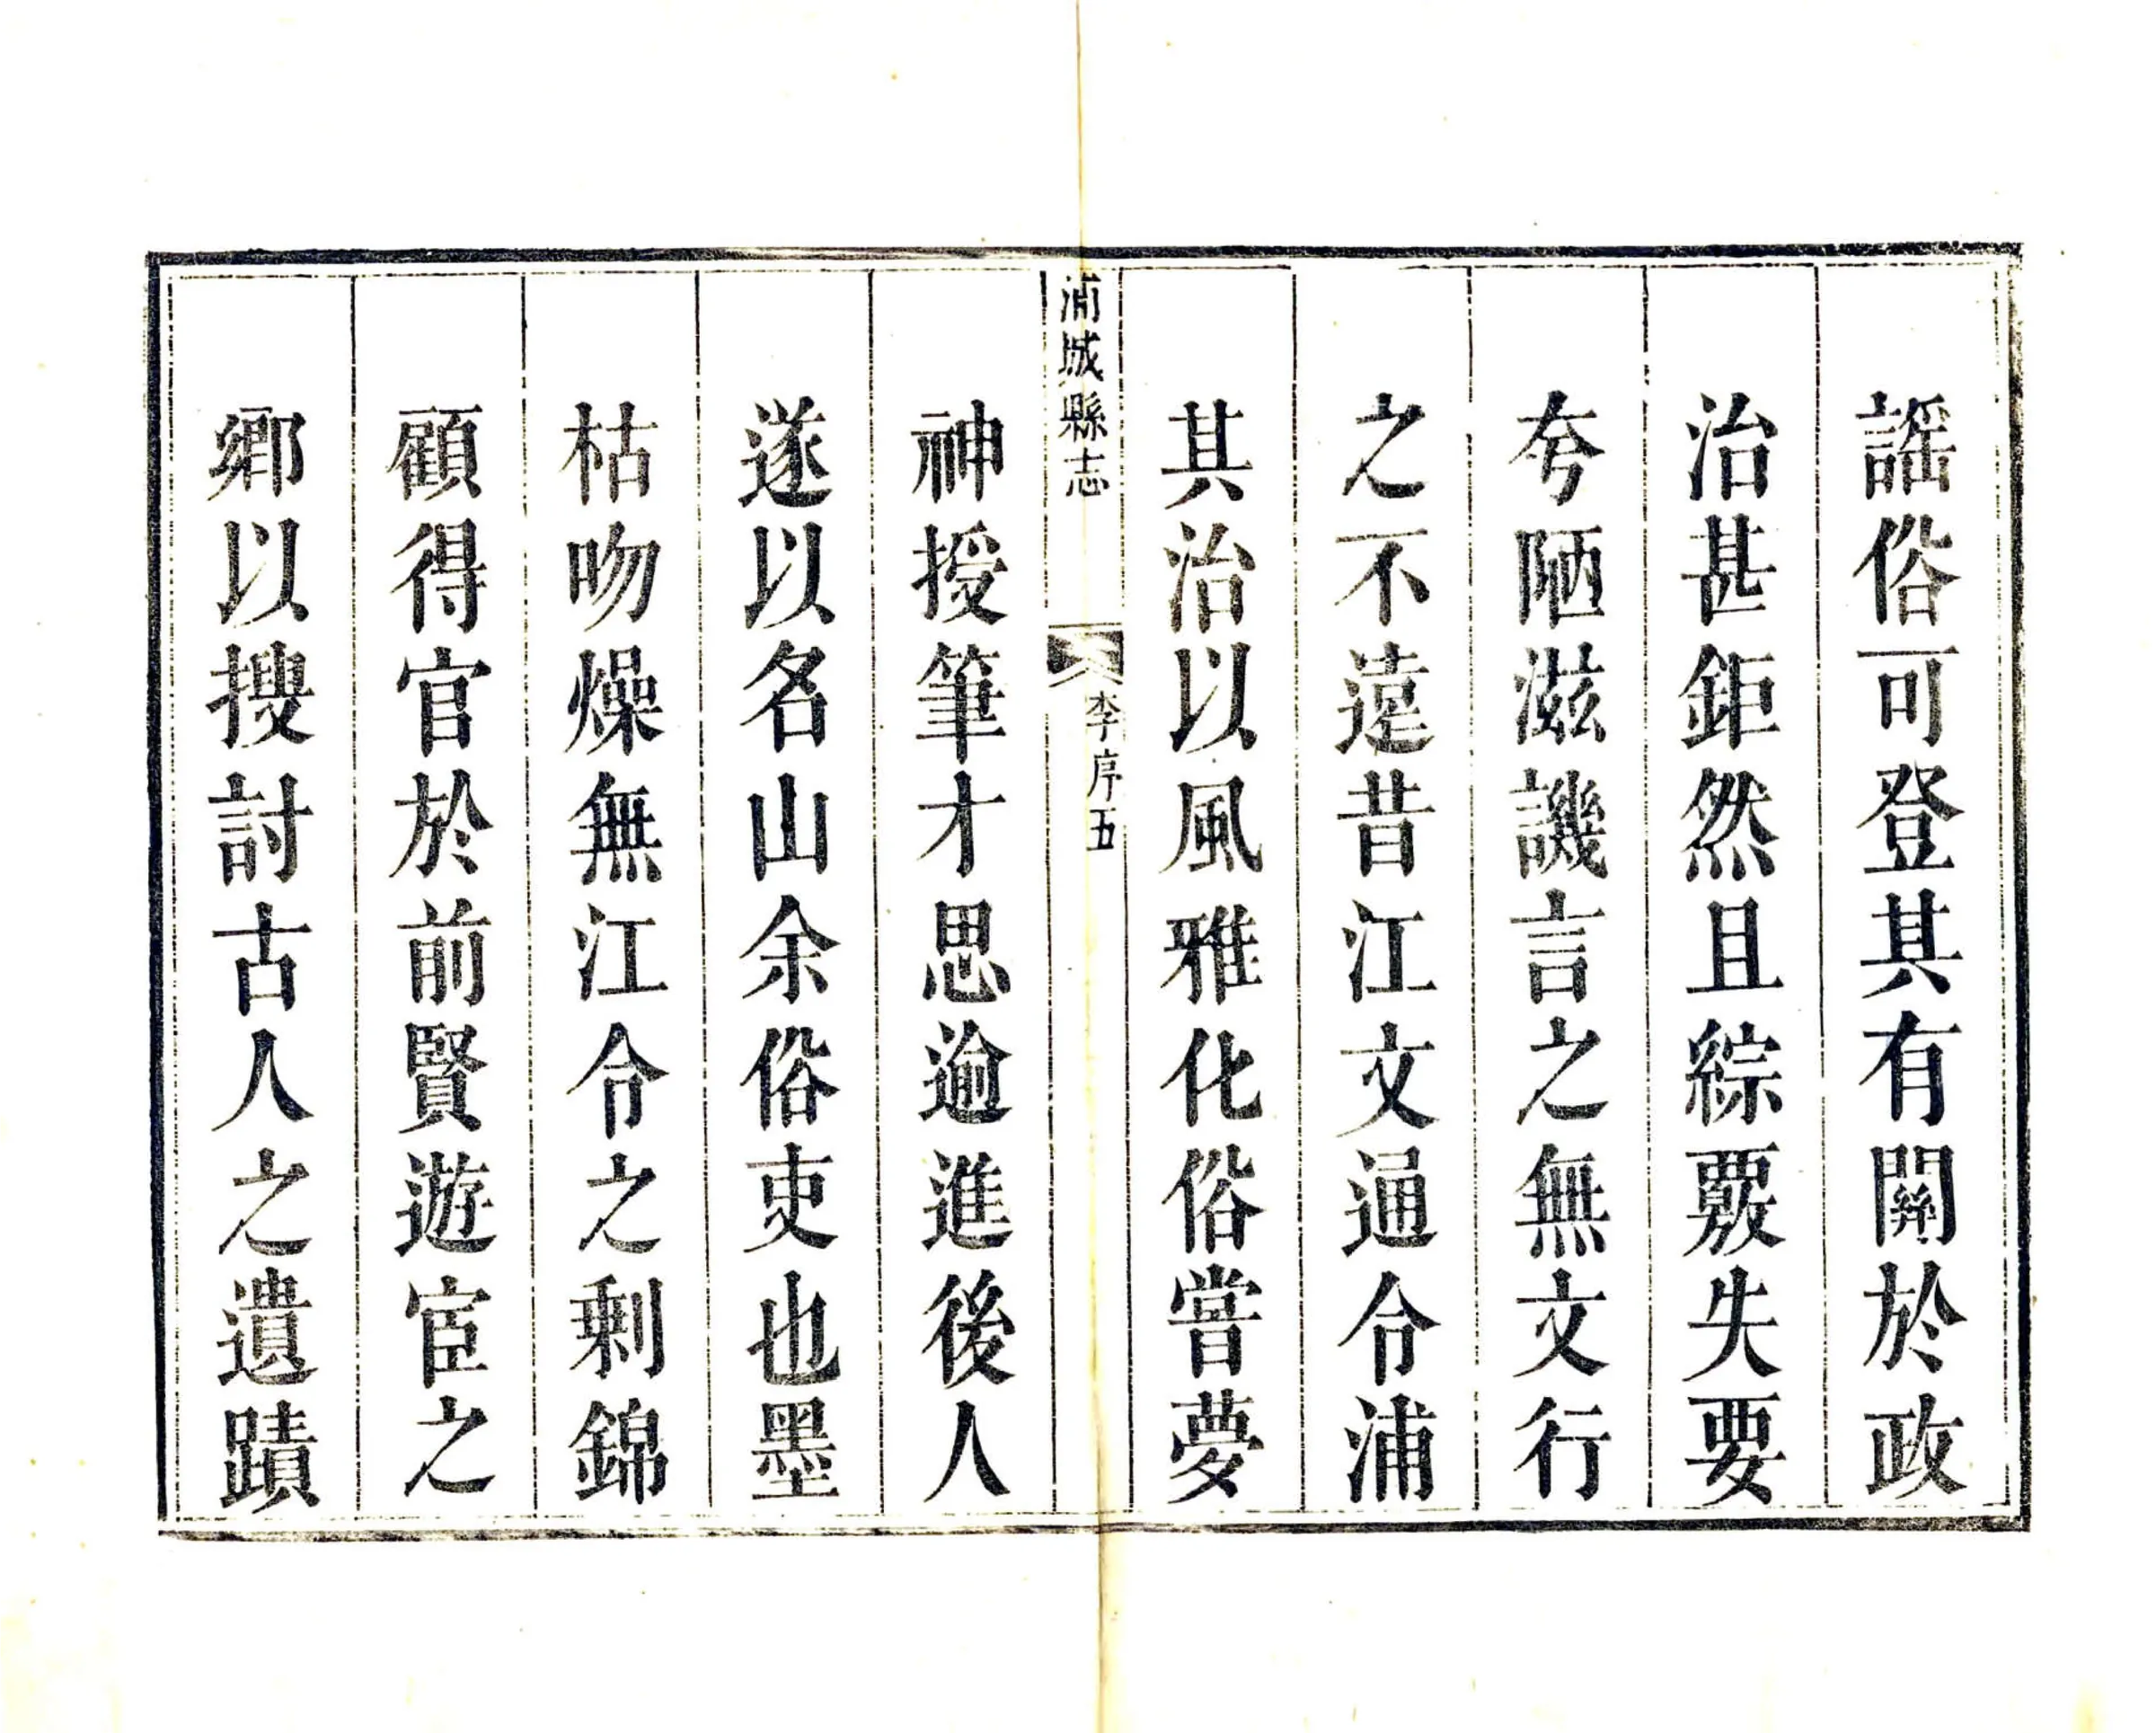 謡俗可登其有關於政
治甚鉅然且綜覈失要
夸陋滋譏言之無文行
之不遠昔江文通令浦
其治以風雅化俗嘗夢
浦城縣志
李序五
神授筆才思逾進後人
遂以名山余俗吏也墨
枯吻燥無江令之剩錦
顧得官於前賢遊宦之
鄉以搜討古人之遺蹟